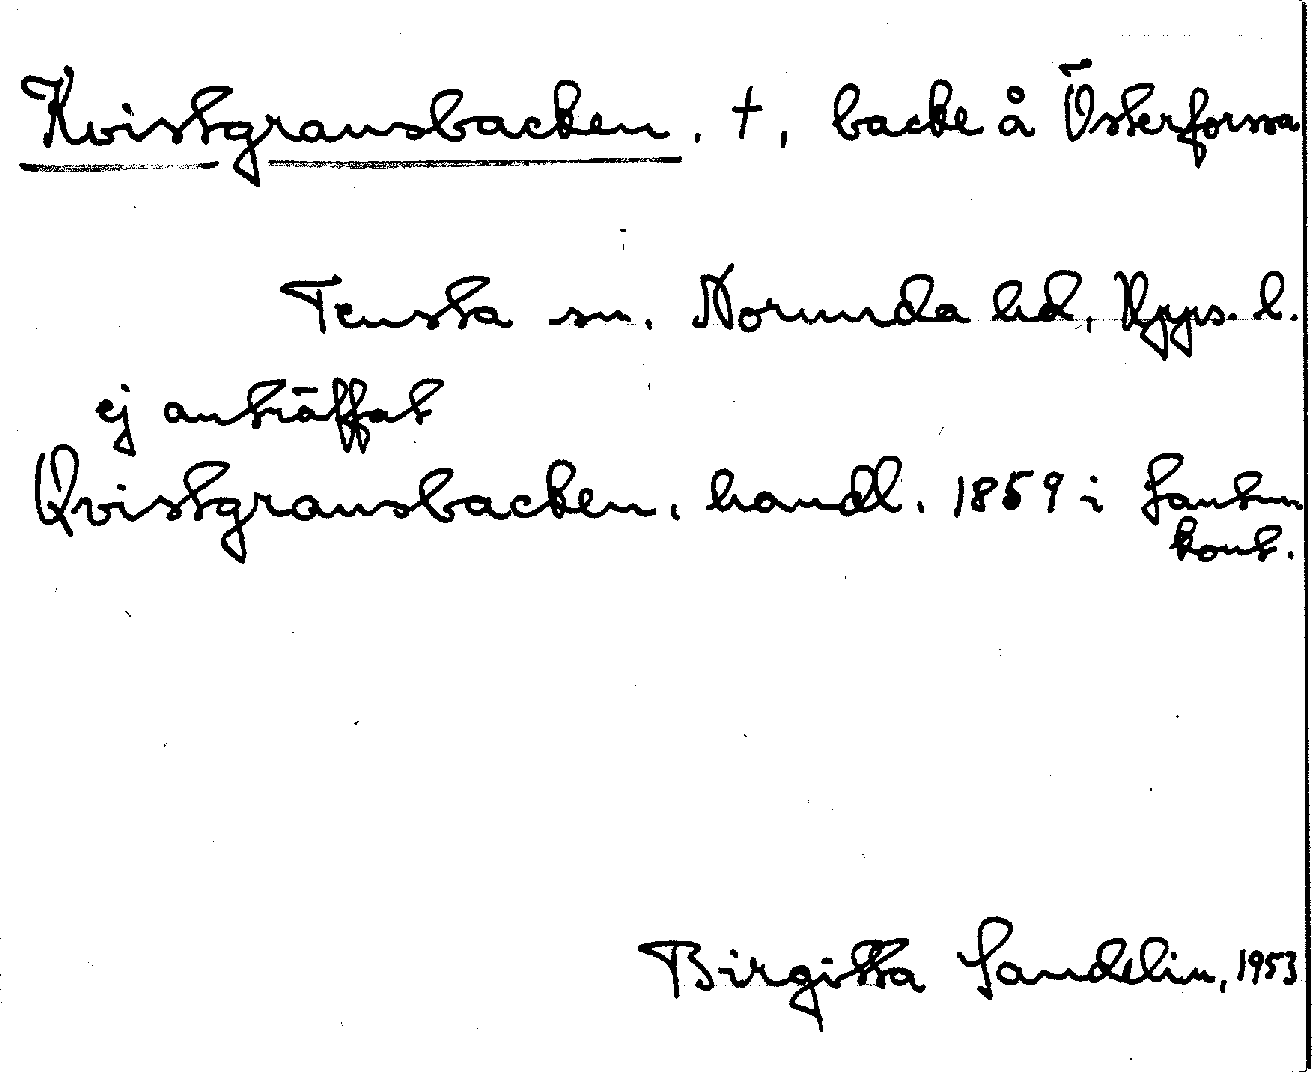 Kvistgransbacken. †, backe å Österforssa
Tensta sn. Norunda hd, Upps. l.
ej anträffat
Qvistgransbacken, handl. 1859 i Lantm
kont.
Birgitta Sandelin, 1953